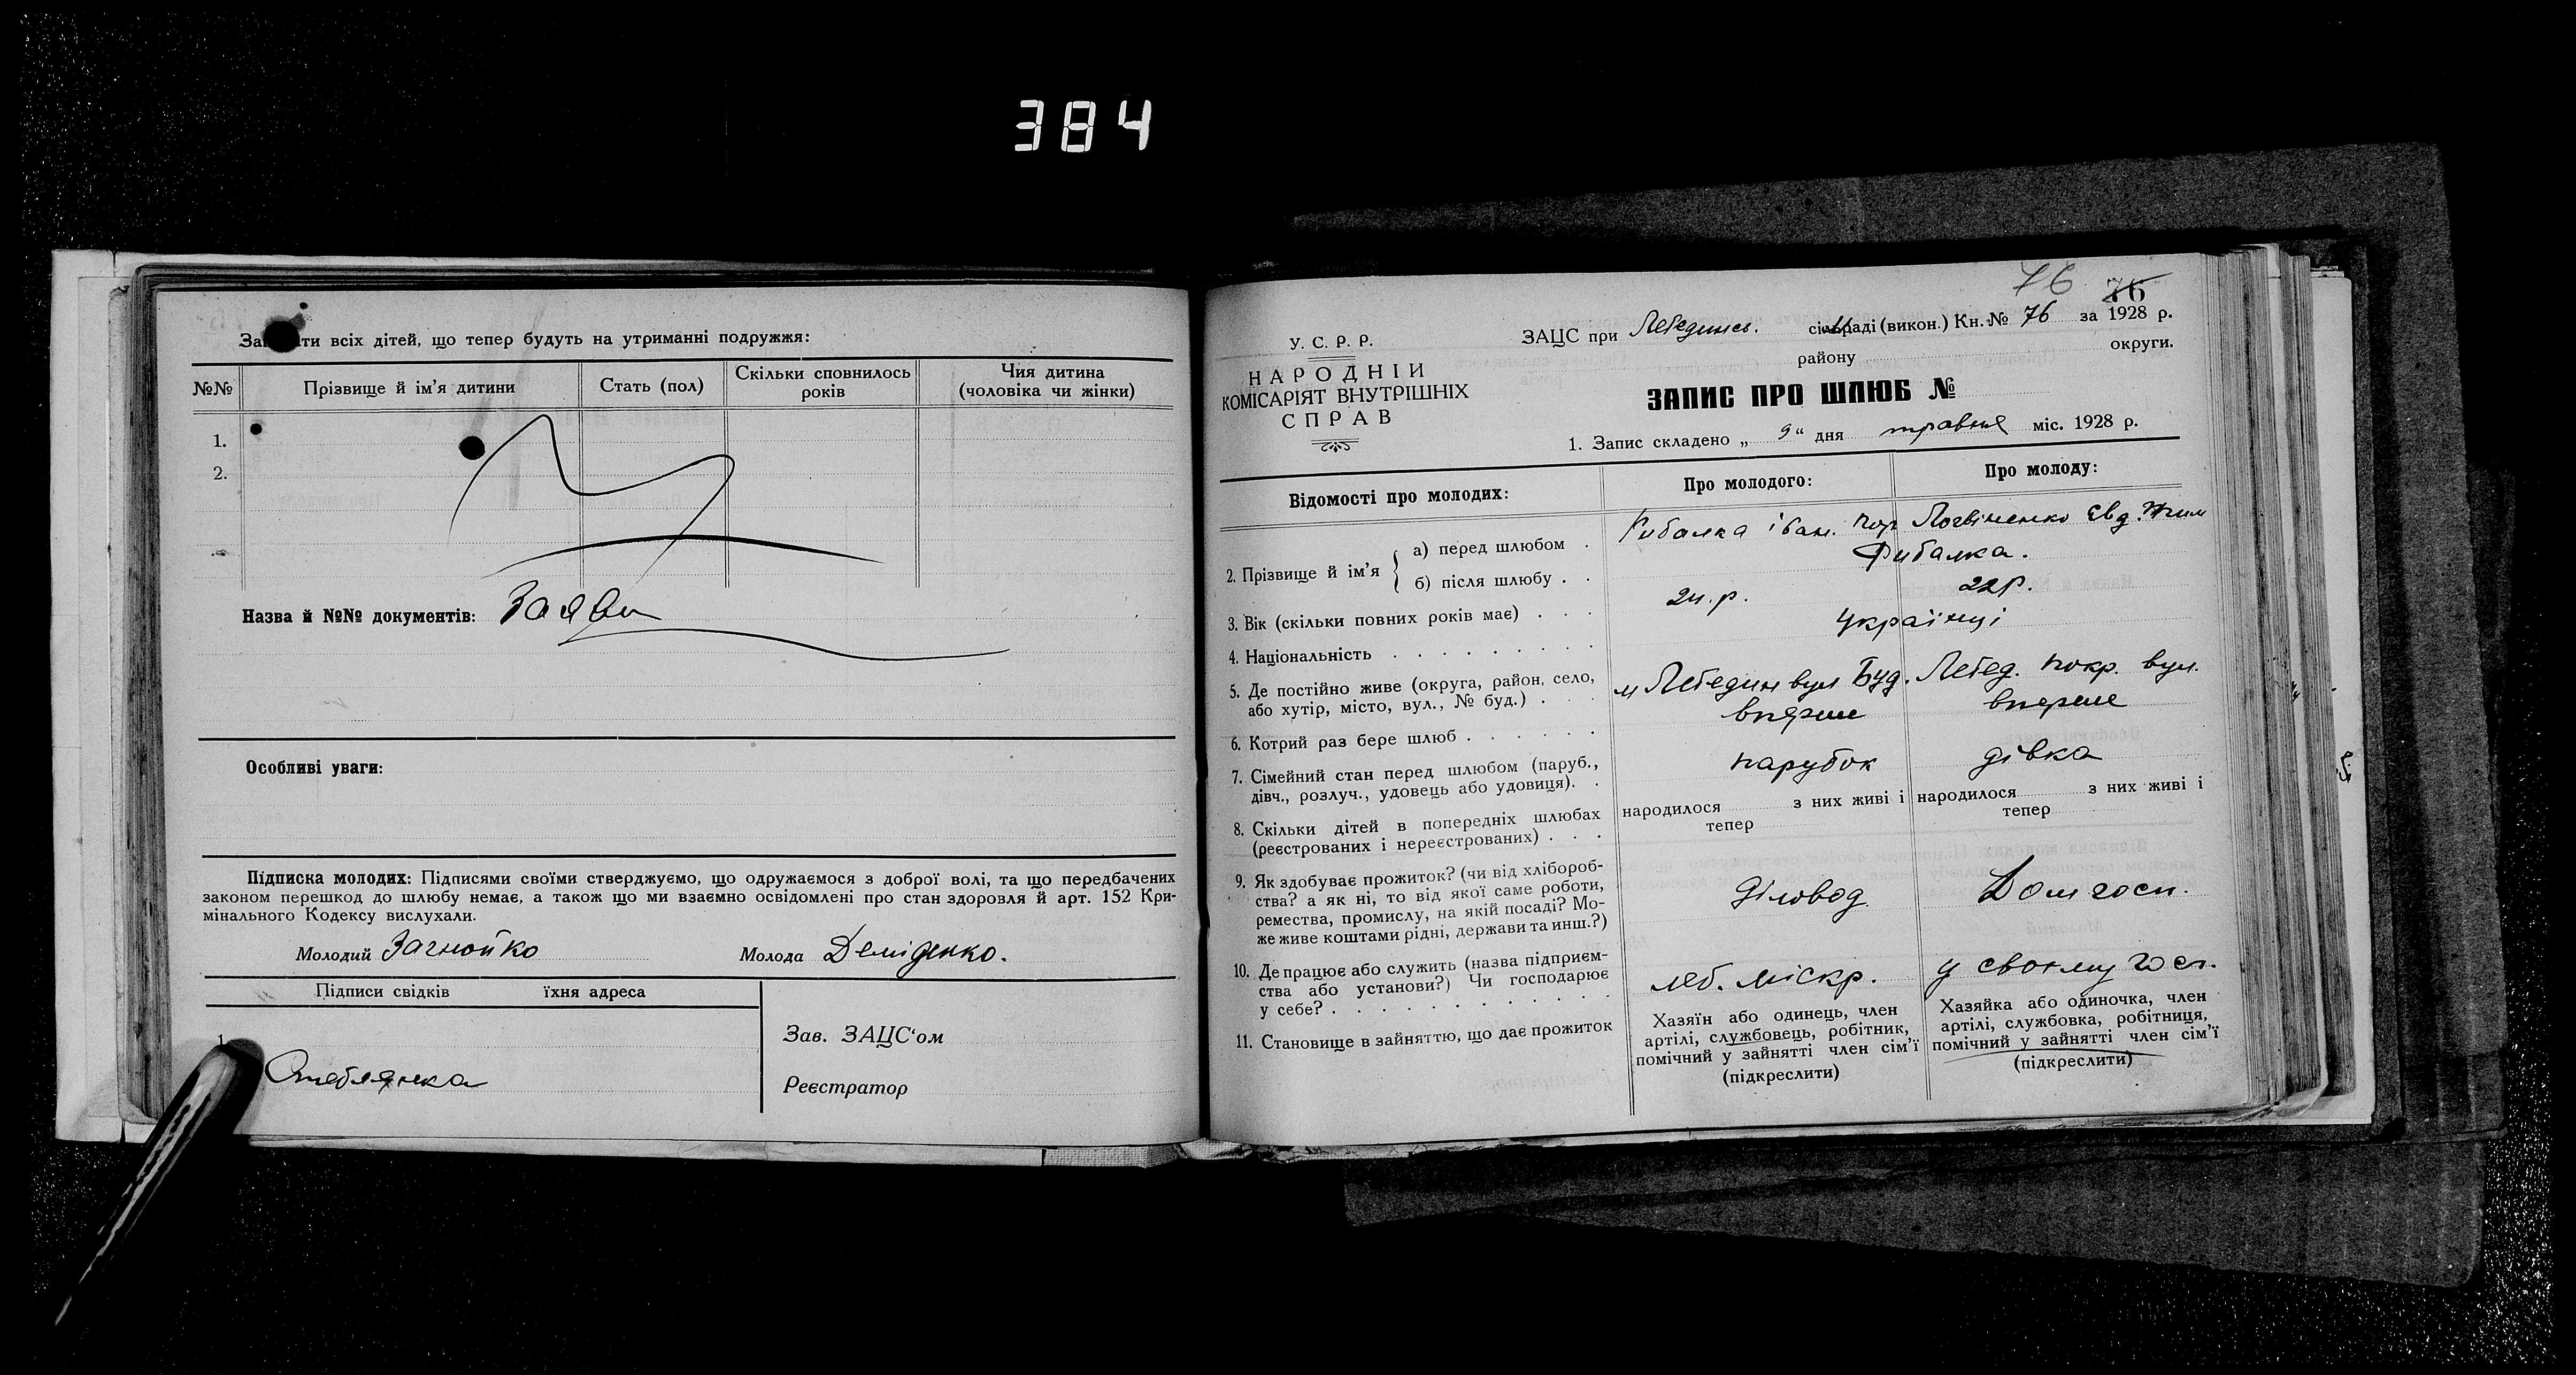 384
Записати всіх дітей, що тепер будуть на утриманні подружжя:
№№ Прізвище й ім'я дитини Стать (пол) Скільки сповнилось років Чия дитина (чоловіка чи жінки)
1.
2.
Назва й №№ документів: Заяви
Особливі уваги:
Підписка молодих: Підписами своїми стверджуємо, що одружаємося з доброї волі, та що передбачених
законом перешкод до шлюбу немає, а також що ми взаємно освідомлені про стан здоровля й арт. 152 Кри-
мінального Кодексу вислухали.
Молодий Загнойко Молода Деміденко.
Підписи свідків їхня адреса
1.
Стеблянка
Зав. ЗАЦС'ом
Реєстратор
76 76
У. С. Р. Р.
НАРОДНІЙ
КОМІСАРІЯТ ВНУТРІШНІХ
СПРАВ
ЗАЦС при Лебединсь. сільраді (викон.) Кн. № 76 за 1928 р.
району округи.
ЗАПИС ПРО ШЛЮБ №
1. Запис складено „ 9 “ дня травня міс. 1928 р.
Відомості про молодих: Про молодого: Про молоду:
2. Прізвище й ім'я
а) перед шлюбом . Рибалка Іван. Логвіненко Євд.
б) після шлюбу . . Рибалка.
3. Вік (скільки повних років має) . . . 24.р. 22р.
4. Національність . . . . . . . . . Українці
5. Де постійно живе (округа, район, село,
або хутір, місто, вул., № буд.) . . . м Лебедин вул Буд. Лебед. Покр. вул.
6. Котрий раз бере шлюб . . . . . . вперше вперше
7. Сімейний стан перед шлюбом (паруб.,
дівч., розлуч., удовець або удовиця). . парубок дівка
8. Скільки дітей в попередніх шлюбах
(реєстрованих і нереєстрованих) . . .
народилося з них живі і тепер
народилося з них живі і тепер
9. Як здобуває прожиток? (чи від хлібороб-
ства? а як ні, то від якої саме роботи,
ремества, промислу, на якій посаді? Мо-
же живе коштами рідні, держави та инш.?)
діловод Дом госп.
10. Де працює або служить (назва підприєм-
ства або установи?) Чи господарює
у себе? . . . . . . . . .
Леб. міскр. у своєму госп.
11. Становище в зайняттю, що дає прожиток
Хазяїн або одинець, член
артілі, службовець, робітник,
помічний у зайнятті член сім'ї
(підкреслити)
Хазяйка або одиночка, член
артілі, службовка, робітниця,
помічний у зайнятті член сім'ї
(підкреслити)